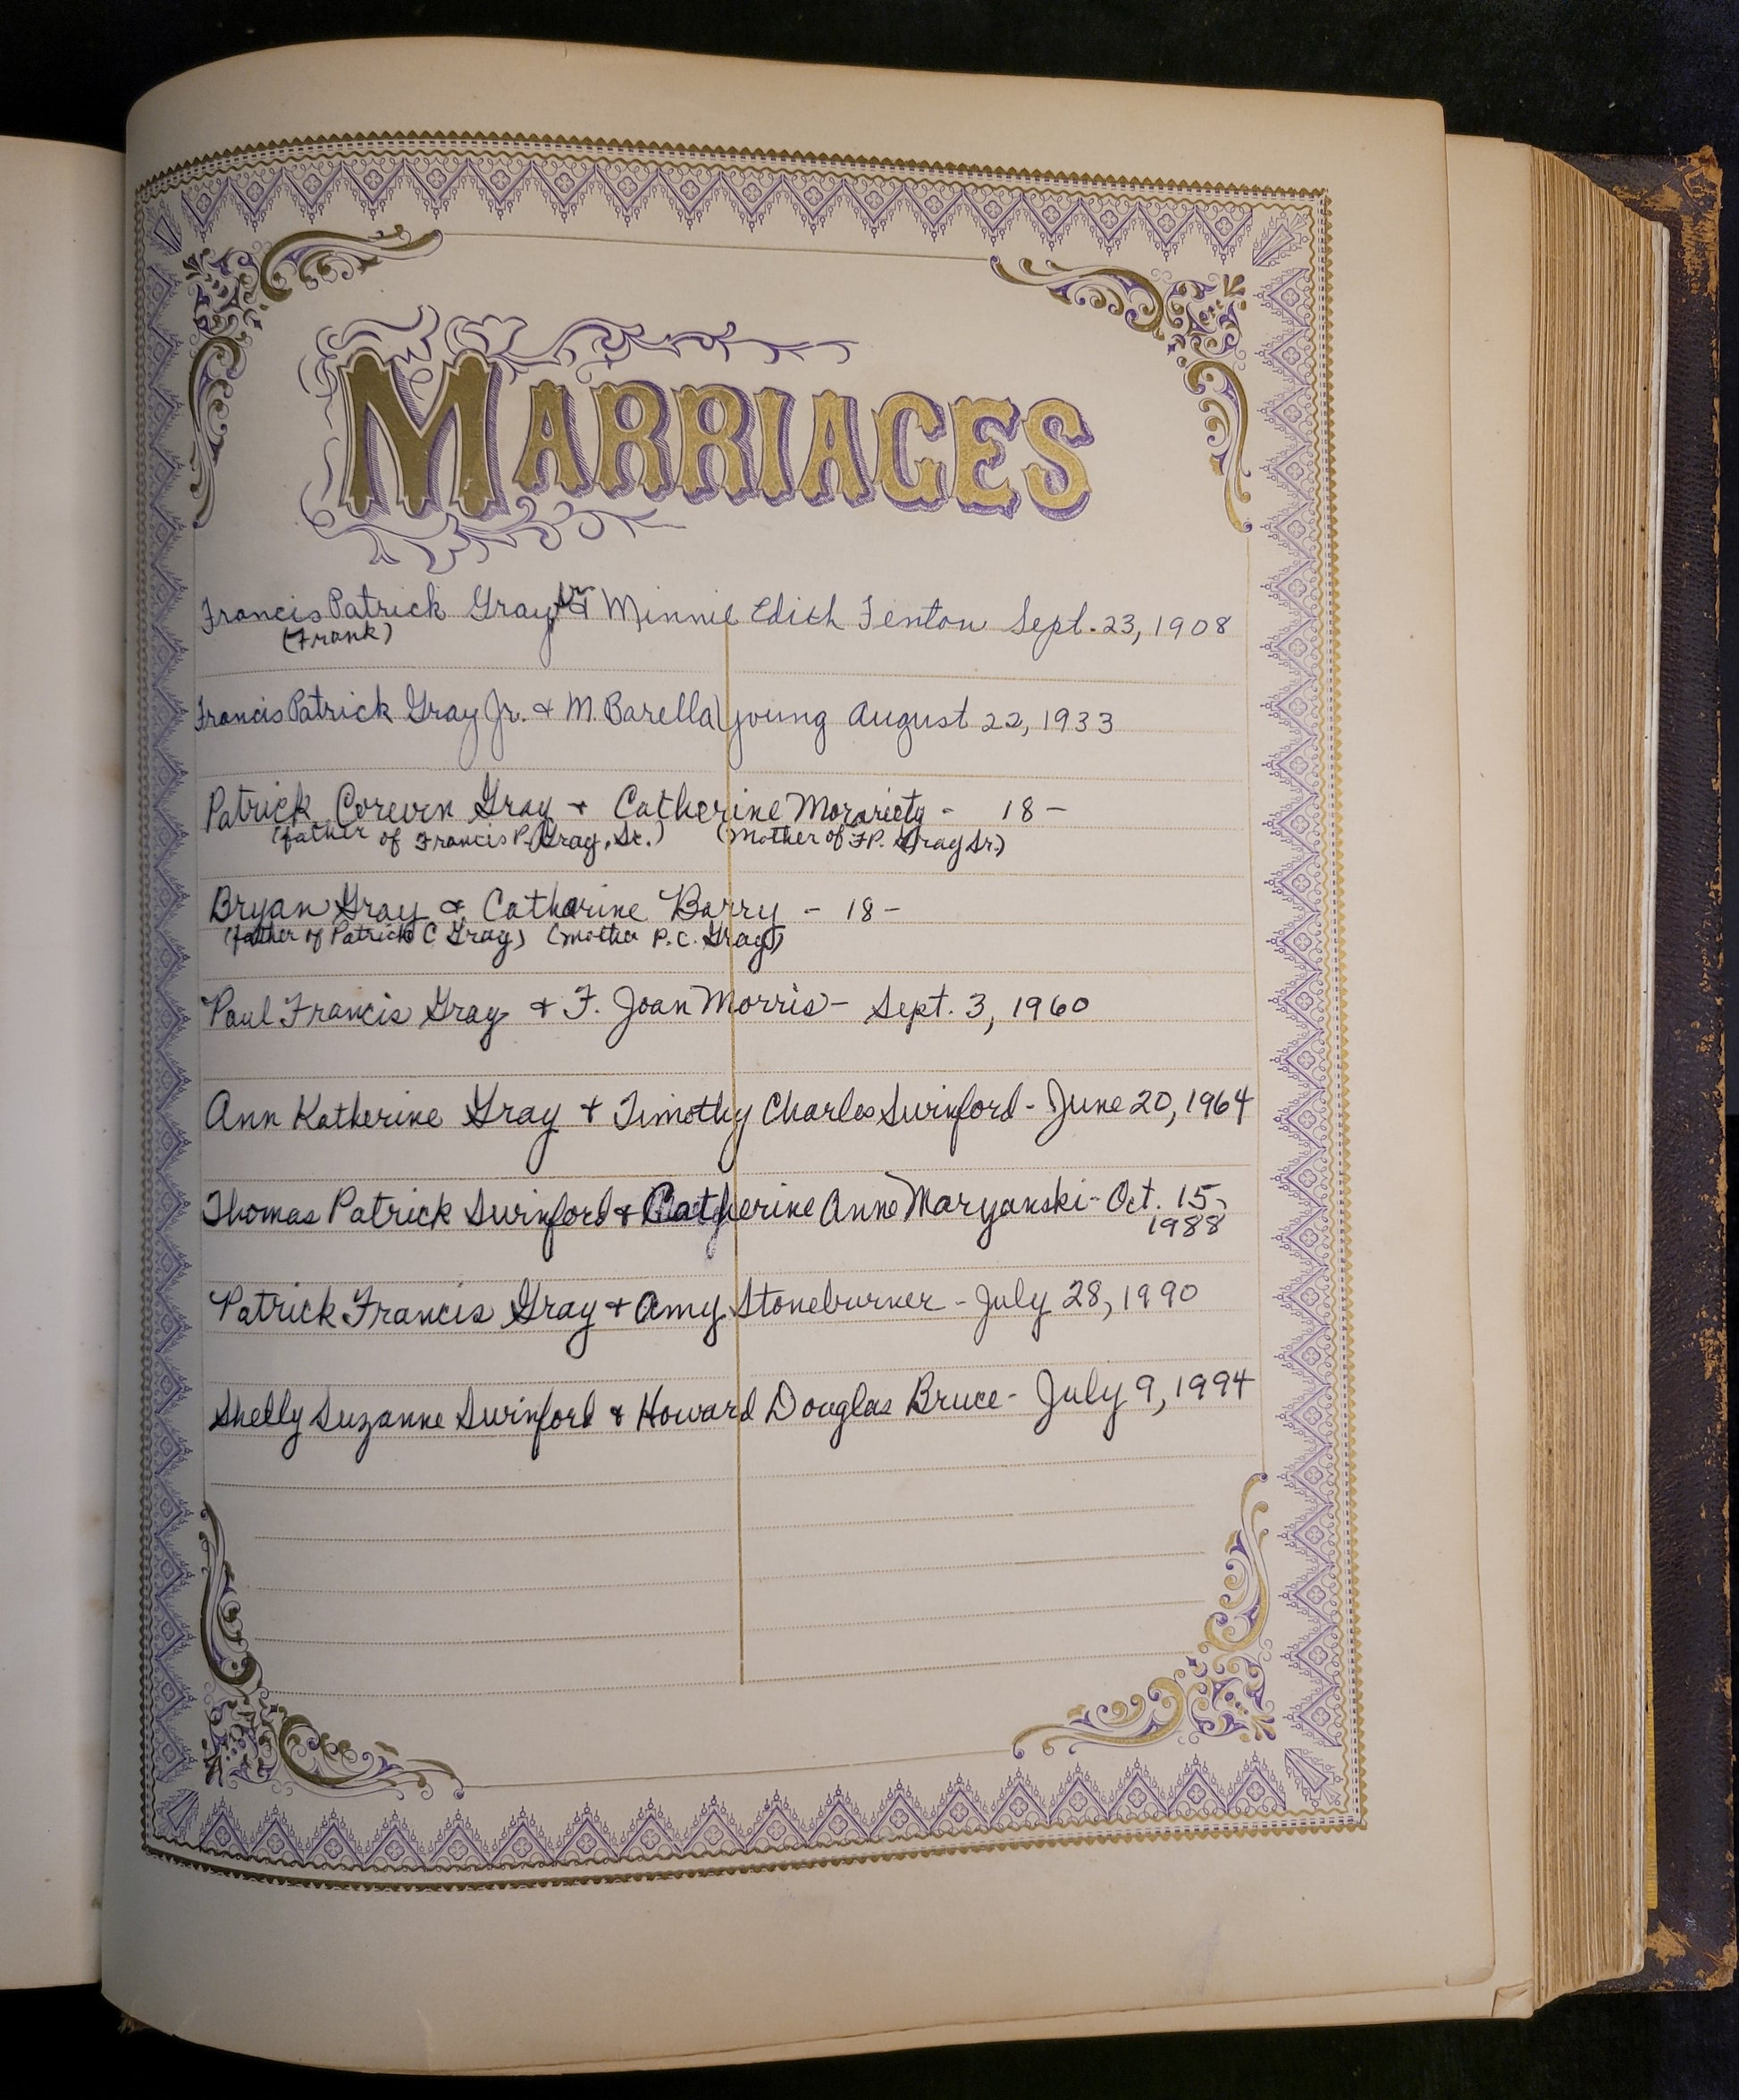 MARRIAGES
Francis Patrick Gray Sr & Minnie Edith Fenton Sept. 23, 1908
(Frank)
Francis Patrick Gray Jr. & M. Barella Young August 22, 1933
Patrick Corevin Gray & Catherine Morariety - 18 -
(father of Francis P. Gray, Sr.) (Mother of F.P. Gray Sr.)
Bryan Gray & Catharine Barry - 18 -
(father of Patrick C Gray) (mother P.C. Gray)
Paul Francis Gray & F. Joan Morris - Sept. 3, 1960
Ann Katherine Gray & Timothy Charles Swinford - June 20, 1964
Thomas Patrick Swinford & Catherine Anne Maryanski - Oct. 15,
1988
Patrick Francis Gray & Amy Stoneburner - July 28, 1990
Shelly Suzanne Swinford & Howard Douglas Bruce - July 9, 1994